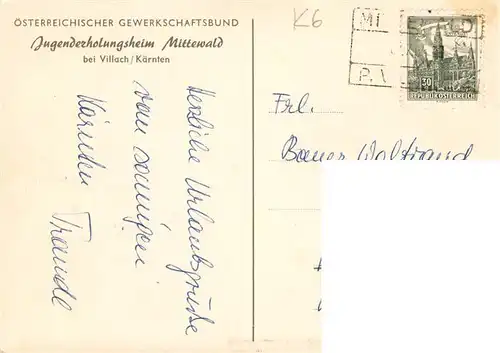 ÖSTERREICHISCHER GEWERKSCHAFTSBUND
Jugenderholungsheim Mittewald
bei Villach/Kärnten
K6
MI
P.A
30
REPUBLIK ÖSTERREICH
Herzliche Urlaubsgrüße
vom sonnigen
Kärnten
Traudl
Frl.
Bauer Waltraud